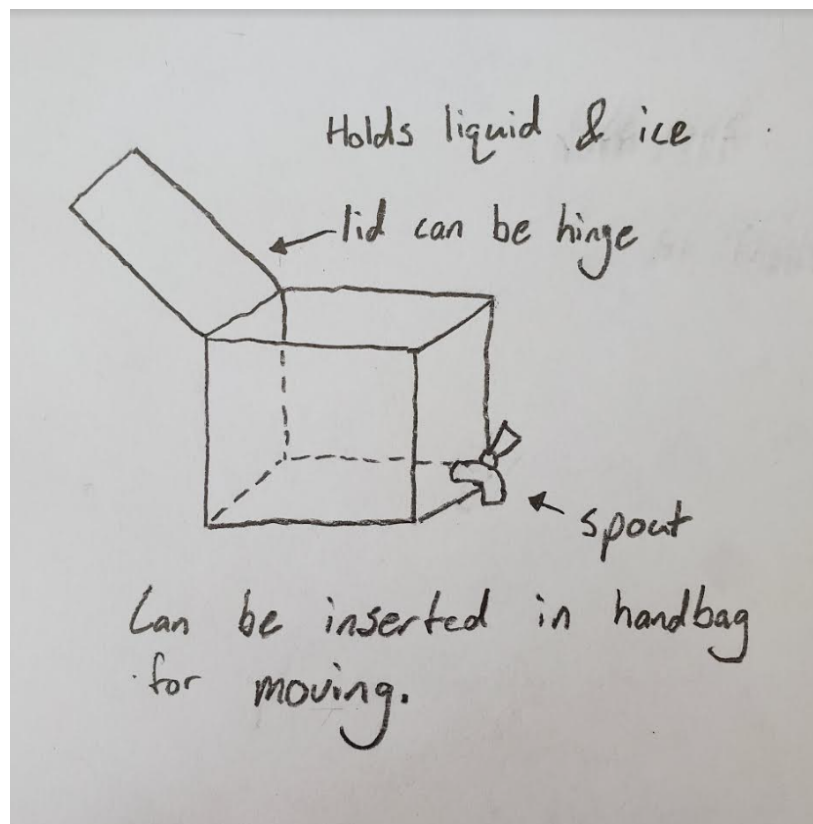 Holds liquid & ice
lid can be hinge
spout
Can be inserted in handbag
for moving.